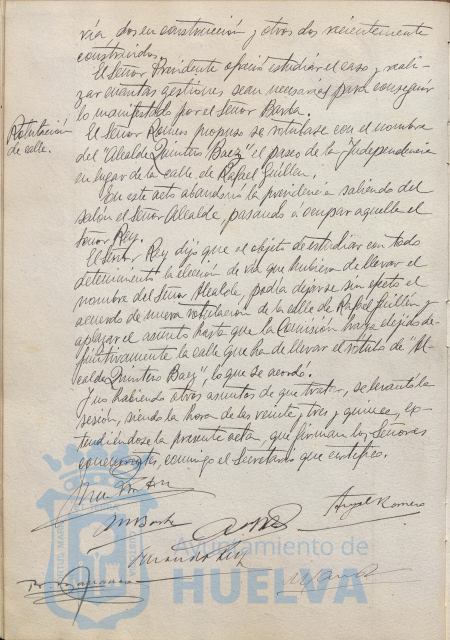 vía dos en construcción y otros dos recientemente
construidos.
El Señor Presidente ofreció estudiar el caso y reali-
zar cuantas gestiones sean necesarias para conseguir
lo manifestado por el Señor Barba.
Rotulación
de calle.
El Señor Romero propuso se rotulase con el nombre
del "Alcalde Quintero Baez" el paseo de la Independencia
en lugar de la calle de Rafael Guillén.
En este acto abandonó la presidencia saliendo del
salón el Señor Alcalde, pasando á ocupar aquella el
Señor Rey.
El Señor Rey dijo que el objeto de estudiar con todo
detenimiento la elección de vía que hubiera de llevar el
nombre del Señor Alcalde, podía dejarse sin efecto el
acuerdo de nueva rotulación de la calle de Rafael Guillén y
aplazar el asunto hasta que la Comisión haya elejido de-
finitivamente la calle que ha de llevar el rótulo de "Al-
calde Quintero Baez", lo que se acordó.
Y no habiendo otros asuntos de que tratar, se levantó la
sesión, siendo la hora de las veinte y tres y quince, ex-
tendiéndose la presente acta, que firman los Señores
concurrentes, conmigo el Secretario que certifico.
Angel Romero
Ayuntamiento de
HUELVA